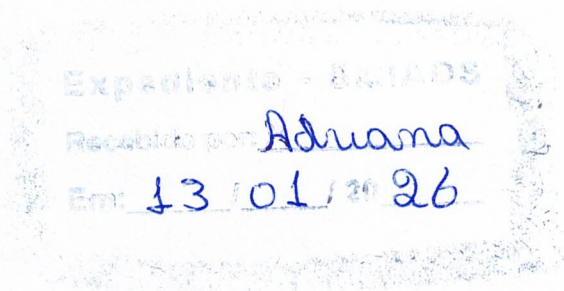 Expediente -
Recebido por: Adriana
Em: 13 / 01 / 20 26